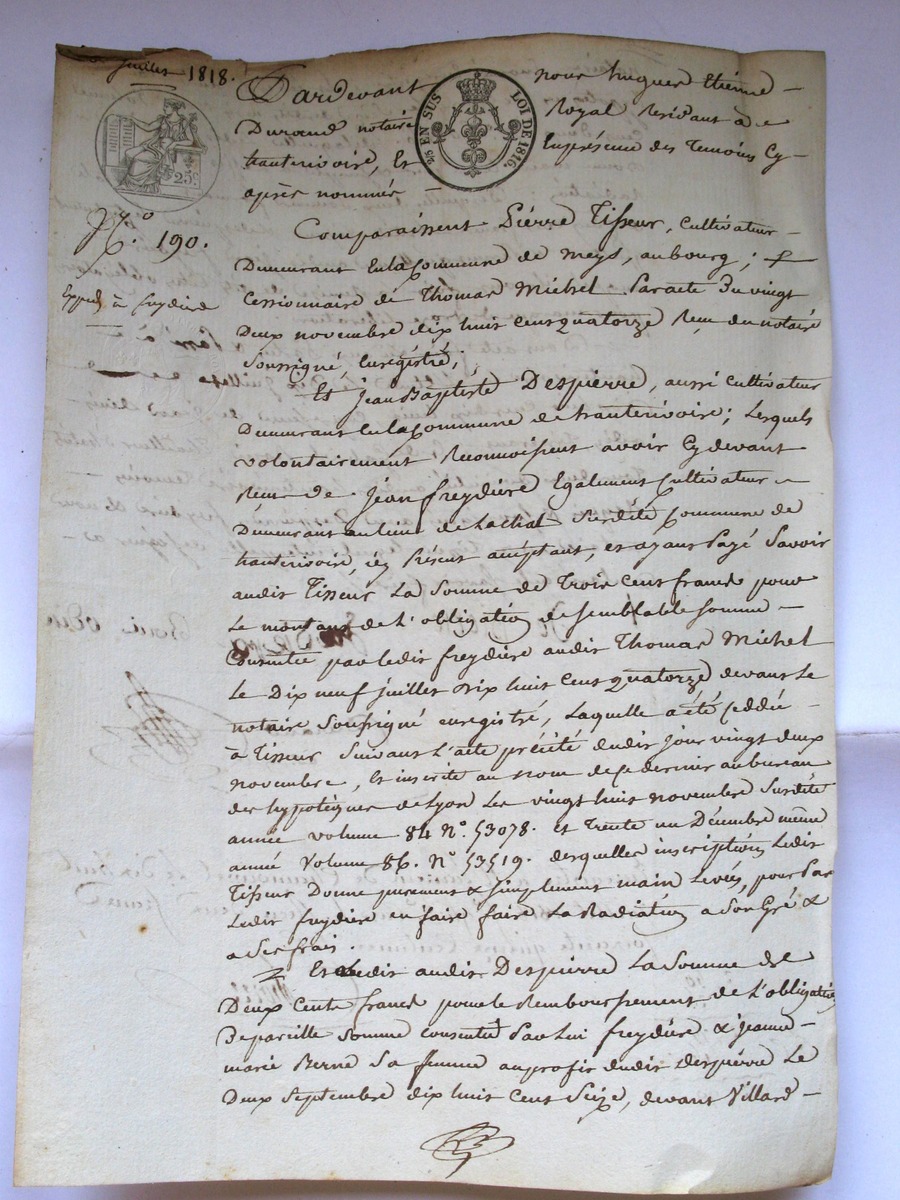 juillet 1818.
Pardevant nous hugues Etiénne
Durand notaire Royal Residant à
hauterivoire, Et Enprésence des Temoins Cy-
après nommés
EN SUS LOI DE 1816.
25c.
N.o 190.
Expédié à freydiére
Comparaissent Piérre Tisseur, cultivateur
Demeurant Enlacommune de meys, aubourg;
Cessionnaire de Thomas Michel Paracte Du vingt
Deux novembre dix huit centquatorze Reçu du notaire
Soussigné, Enregistré;
Et Jean Baptiste Despierre, aussi Cultivateur
Demeurant Enlacommune de hauterivoire; Lesquels
volontairement Reconnoissent avoir Cydevant
Reçu de Jean freydiére Egalement Cultivateur
Demeurant aulieu de Lachal Susdite Commune de
hauterivoire, icy Présent acceptant, et ayant Payé Savoir
audit Tisseur La Somme de Trois Cent francs pour
Le montant de L'obligation de semblable somme
Consentie par ledit freydiére audit Thomas Michel
Le Dix neuf juillet dix huit Cent quatorze devant Le
notaire Soussigné enregistré, Laquelle a été Ceddée
à Tisseur Suivant L'acte précité dudit jour vingt deux
novembre, Et inscrite au nom de ce dernier aubureau
des hypotèques de Lyon Les vingt huit novembre Susdite
année volume 84 N.o 53078. et Trente un Décembre même
année Volume 86. N.o 53519. desquelles inscriptions Ledit
Tisseur Donne purement & Simplement main Levée, pour Par
Ledit freydiére en faire faire La Radiation a Son Gré &
a Ses frais.
Et Ledit audit Despierre La Somme de
Deux Cents francs pour le Remboursement de L'obligation
De pareille Somme consentie Par Lui freydiére & jeanne
marie Berne Sa femme auprofit dudit Despierre Le
Deux Septembre dix huit Cent Seize, devant Villard